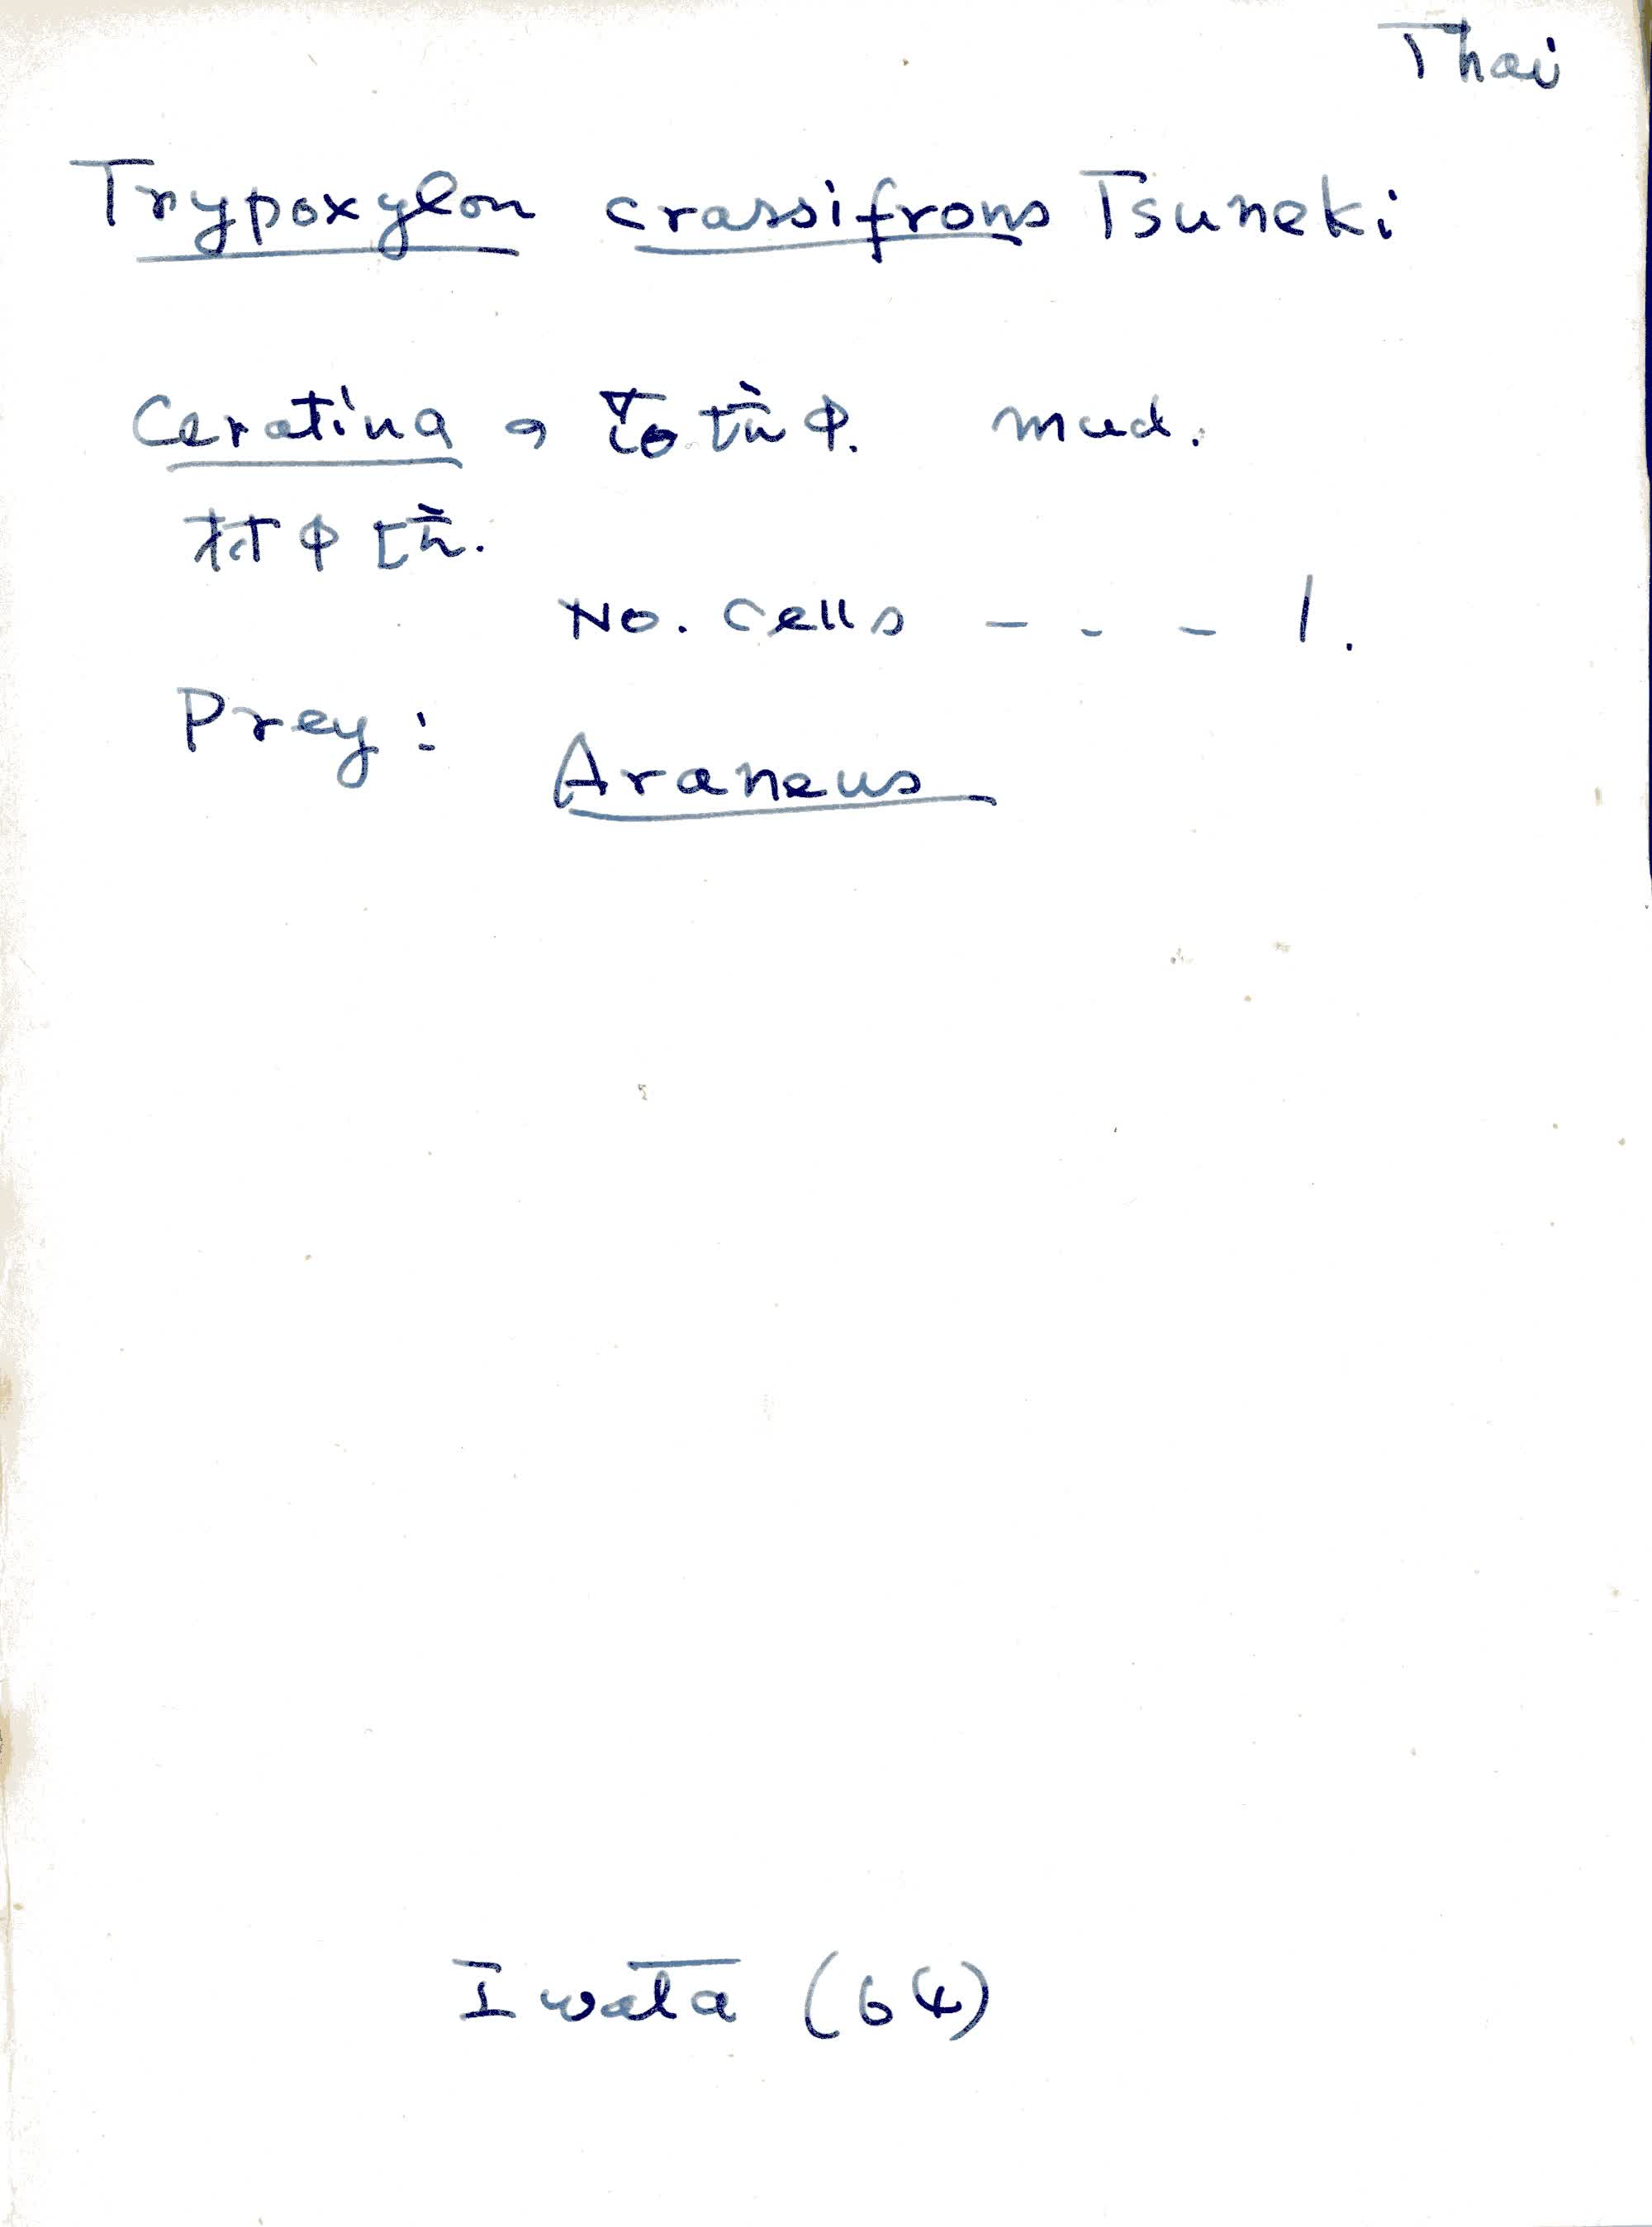 Thai
Trypoxylon crassifrons Tsuneki
Ceratina の古坑中. mud.
材中坑.
No. cells - - - 1.
Prey:
Araneus
Iwata (64)